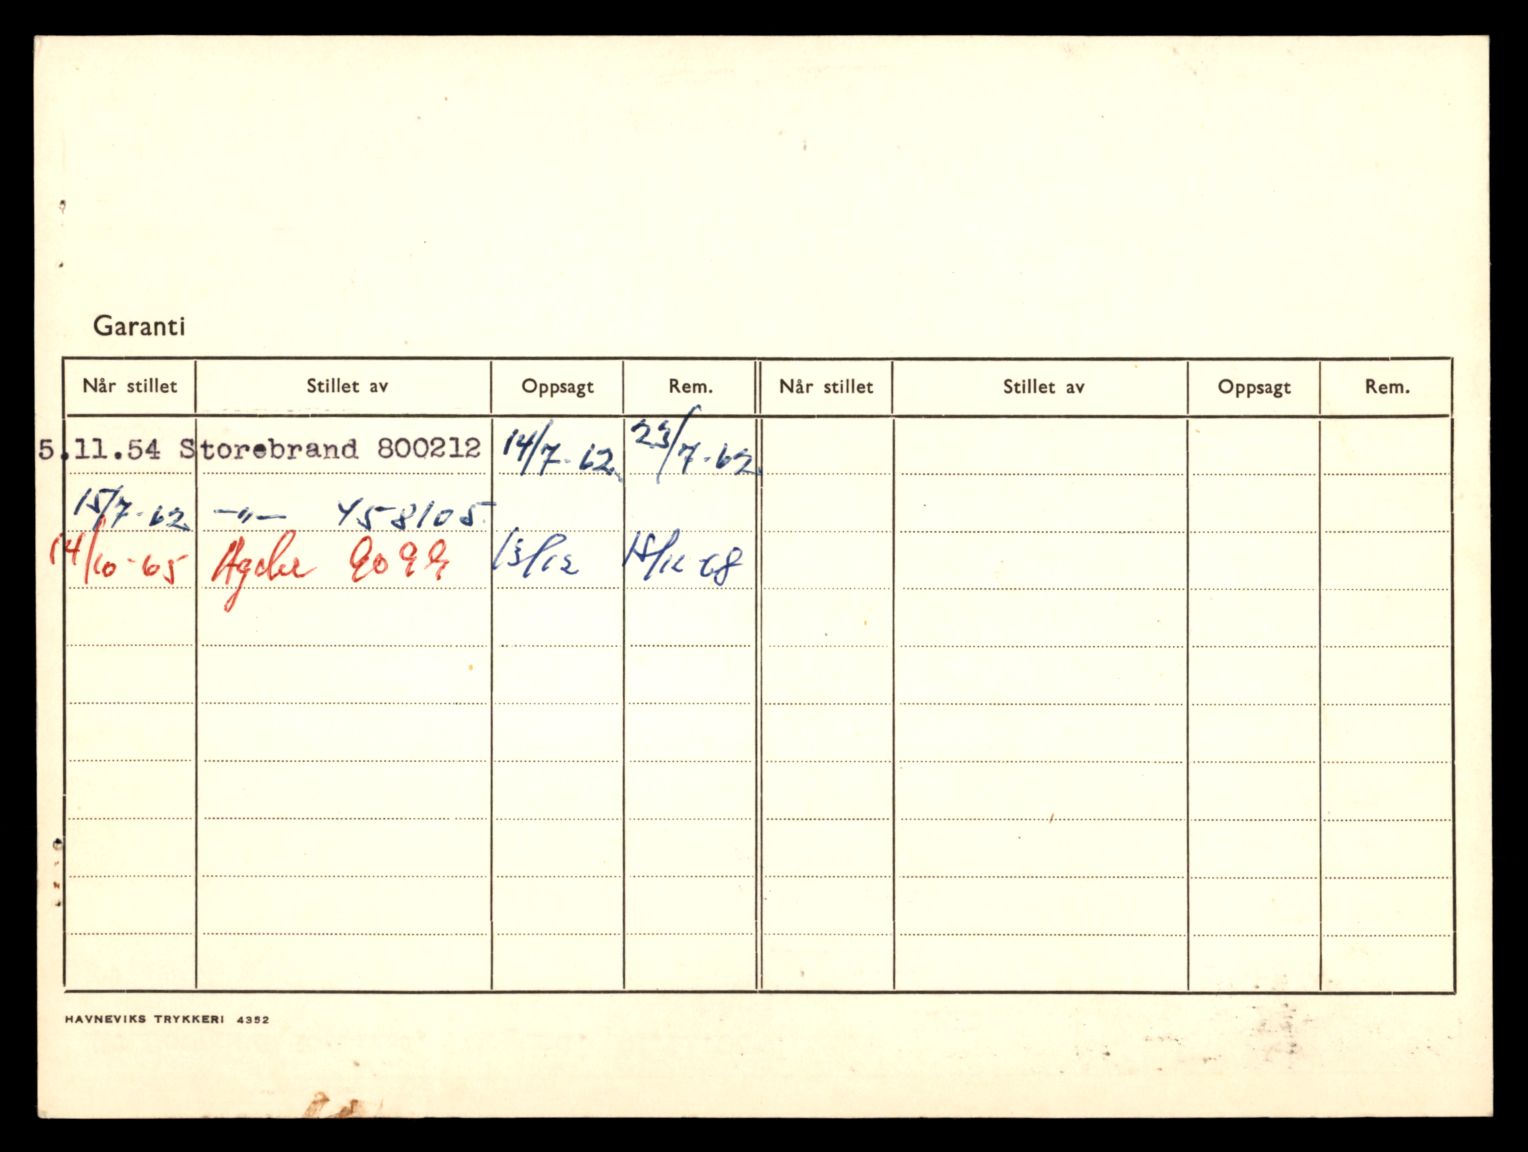 Garanti
Når stillet Stillet av Oppsagt Rem. Når stillet Stillet av Oppsagt Rem.
5.11.54 Storebrand 800212 14/7-62 23/7-62
15/7-62 -"- 458105
14/10-65 13/12 68
HAVNEVIKS TRYKKERI 4352